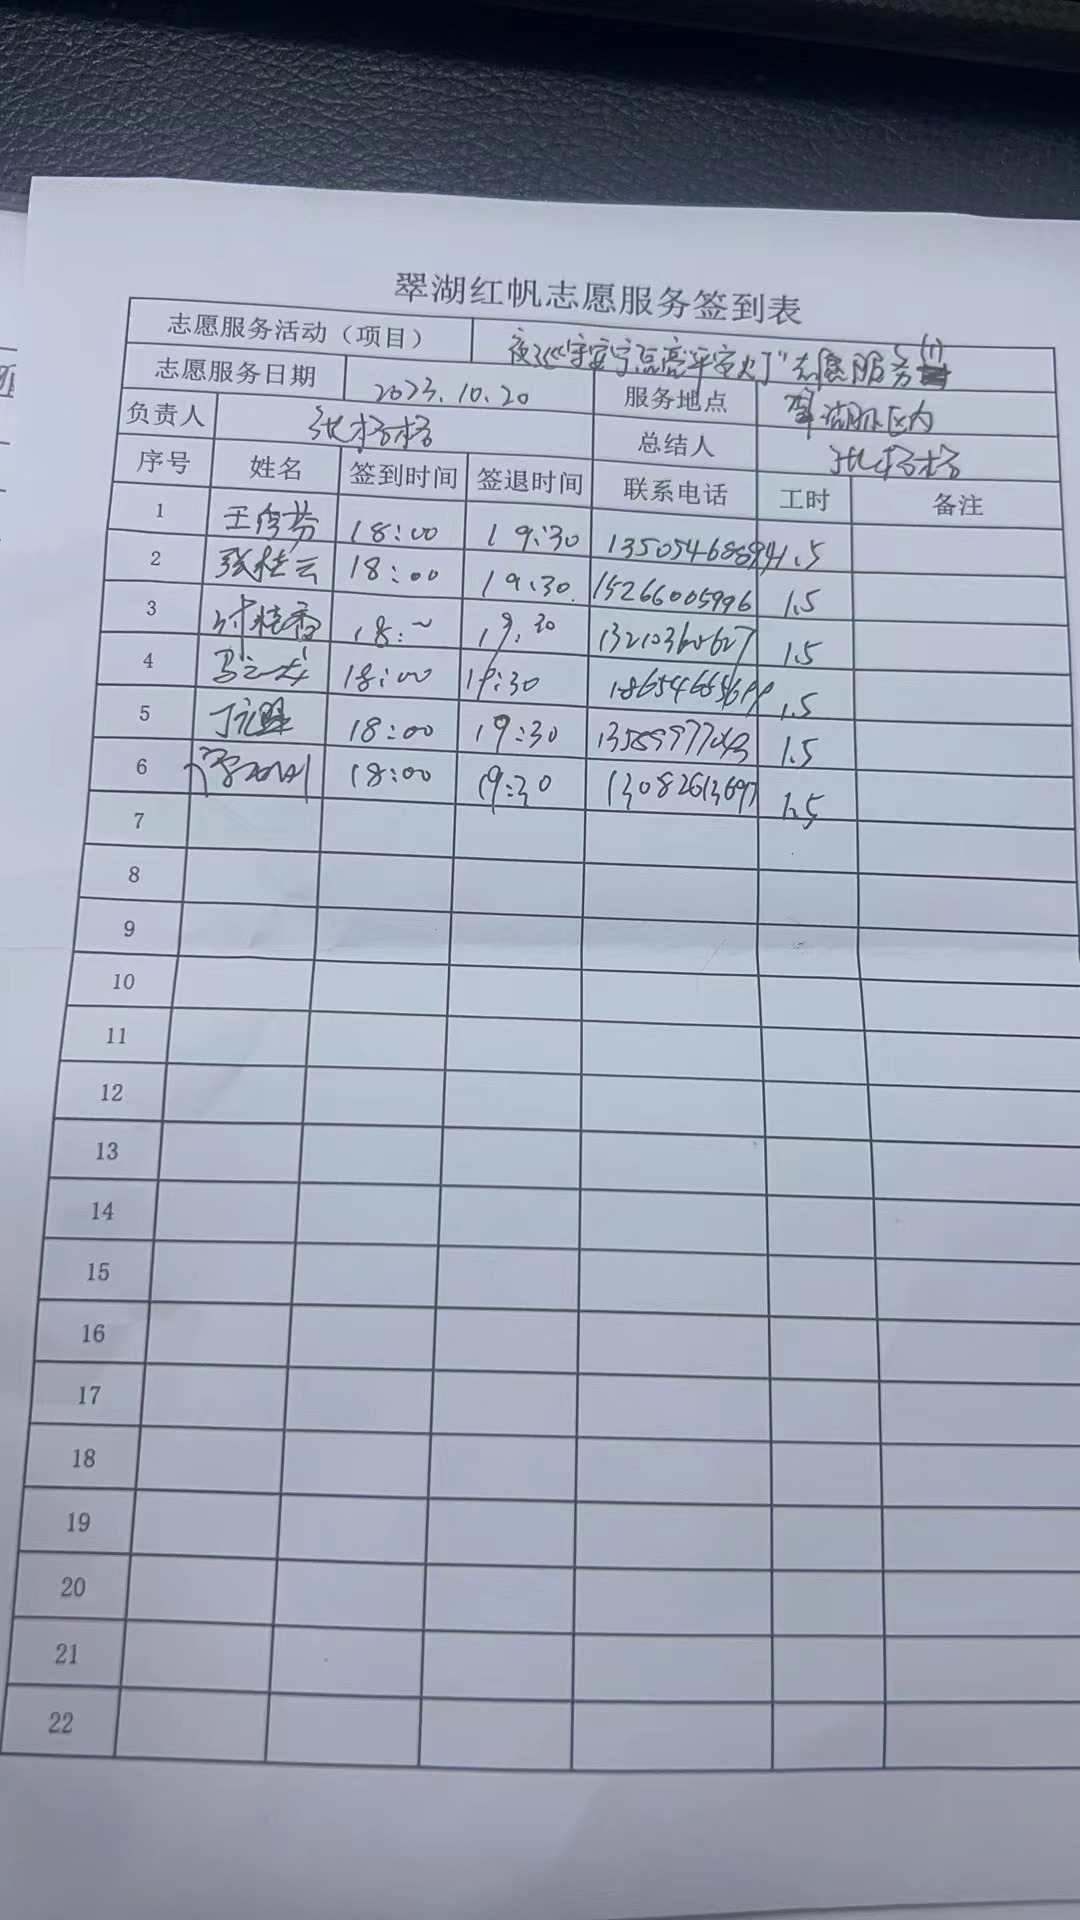 翠湖红帆志愿服务签到表
志愿服务活动（项目） 夜巡守安宁点亮平安灯"志愿服务(1)
志愿服务日期 2023.10.20 服务地点 翠湖社区内
负责人 张格格 总结人 张格格
序号 姓名 签到时间 签退时间 联系电话 工时 备注
1 王传芬 18:00 19:30 1.5
2 张桂云 18:00 19:30 15266005996 1.5
3 18: 19:30 13210360627 1.5
4 马 18:00 19:30 1.5
5 丁 18:00 19:30 1.5
6 18:00 19:30 13082613697 1.5
7
8
9
10
11
12
13
14
15
16
17
18
19
20
21
22